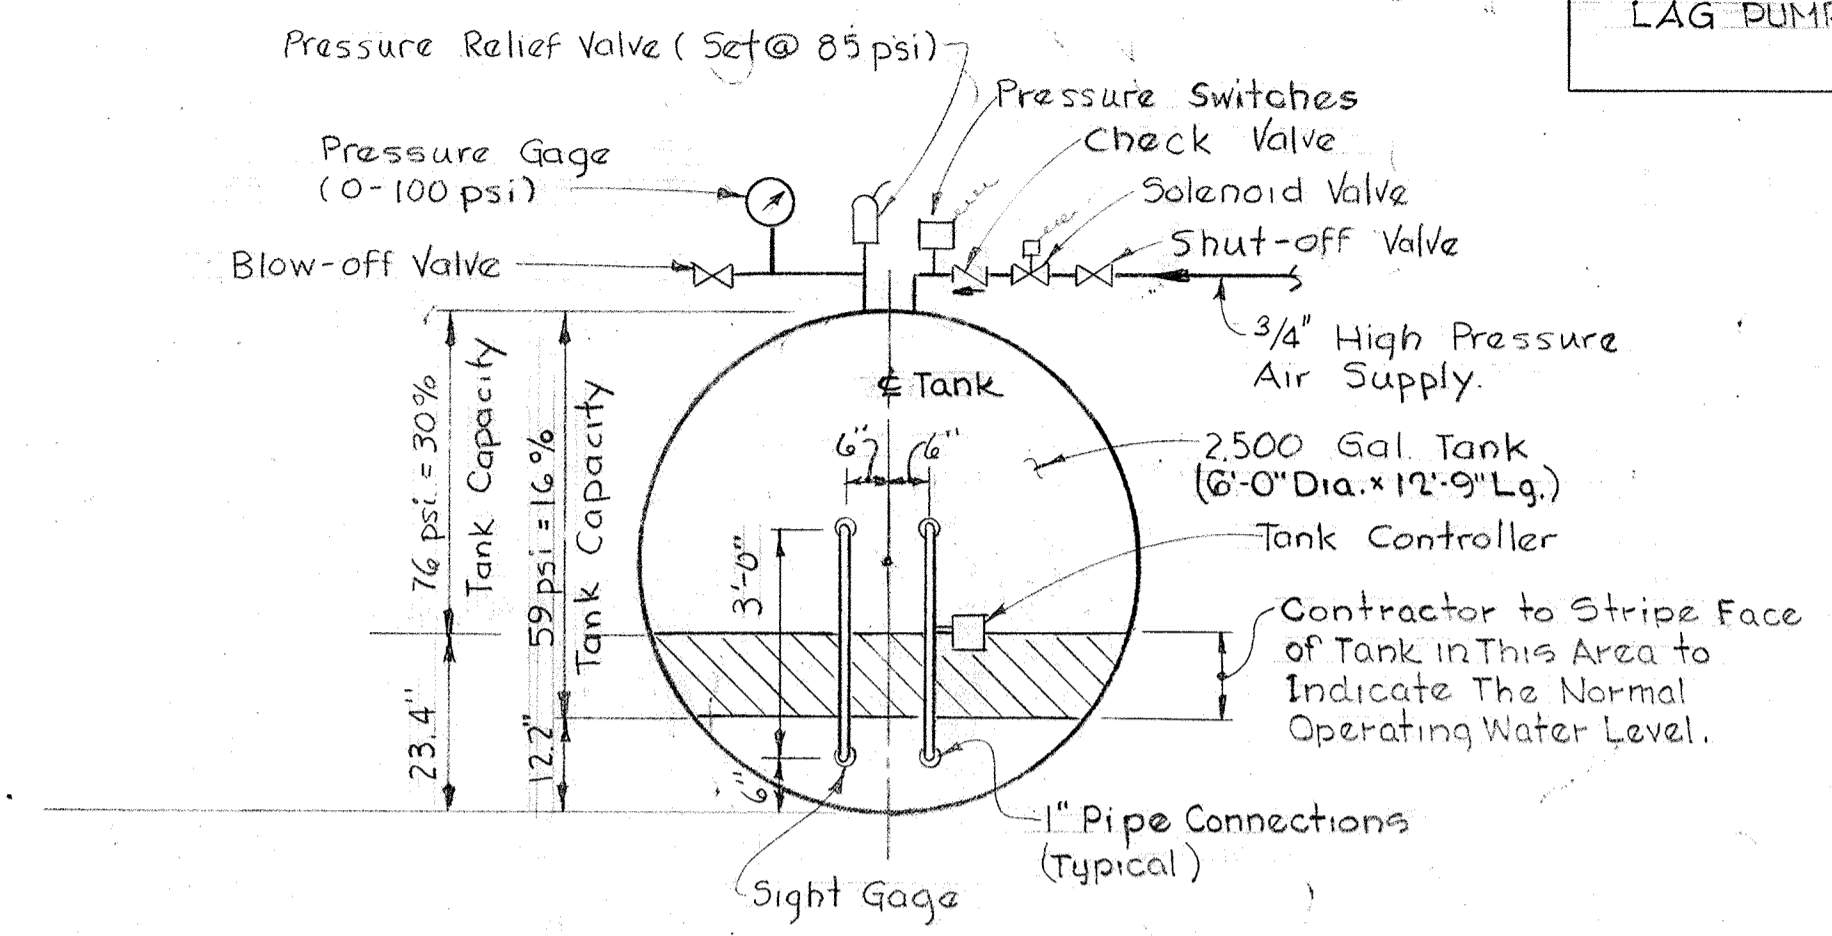 LAG PUMP
Pressure Relief Valve ( Set @ 85 psi)
Pressure Switches
Check Valve
Pressure Gage
(0-100 psi)
Solenoid Valve
Shut-off Valve
Blow-off Valve
3/4" High Pressure
Air Supply.
℄ Tank
76 psi = 30%
Tank Capacity
59 psi = 16%
Tank Capacity
6"
6"
2,500 Gal. Tank
(6'-0" Dia. x 12'-9" Lg.)
Tank Controller
3'-0"
Contractor to Stripe Face
of Tank in This Area to
Indicate The Normal
Operating Water Level.
23.4"
12.2"
6"
1" Pipe Connections
(Typical)
Sight Gage